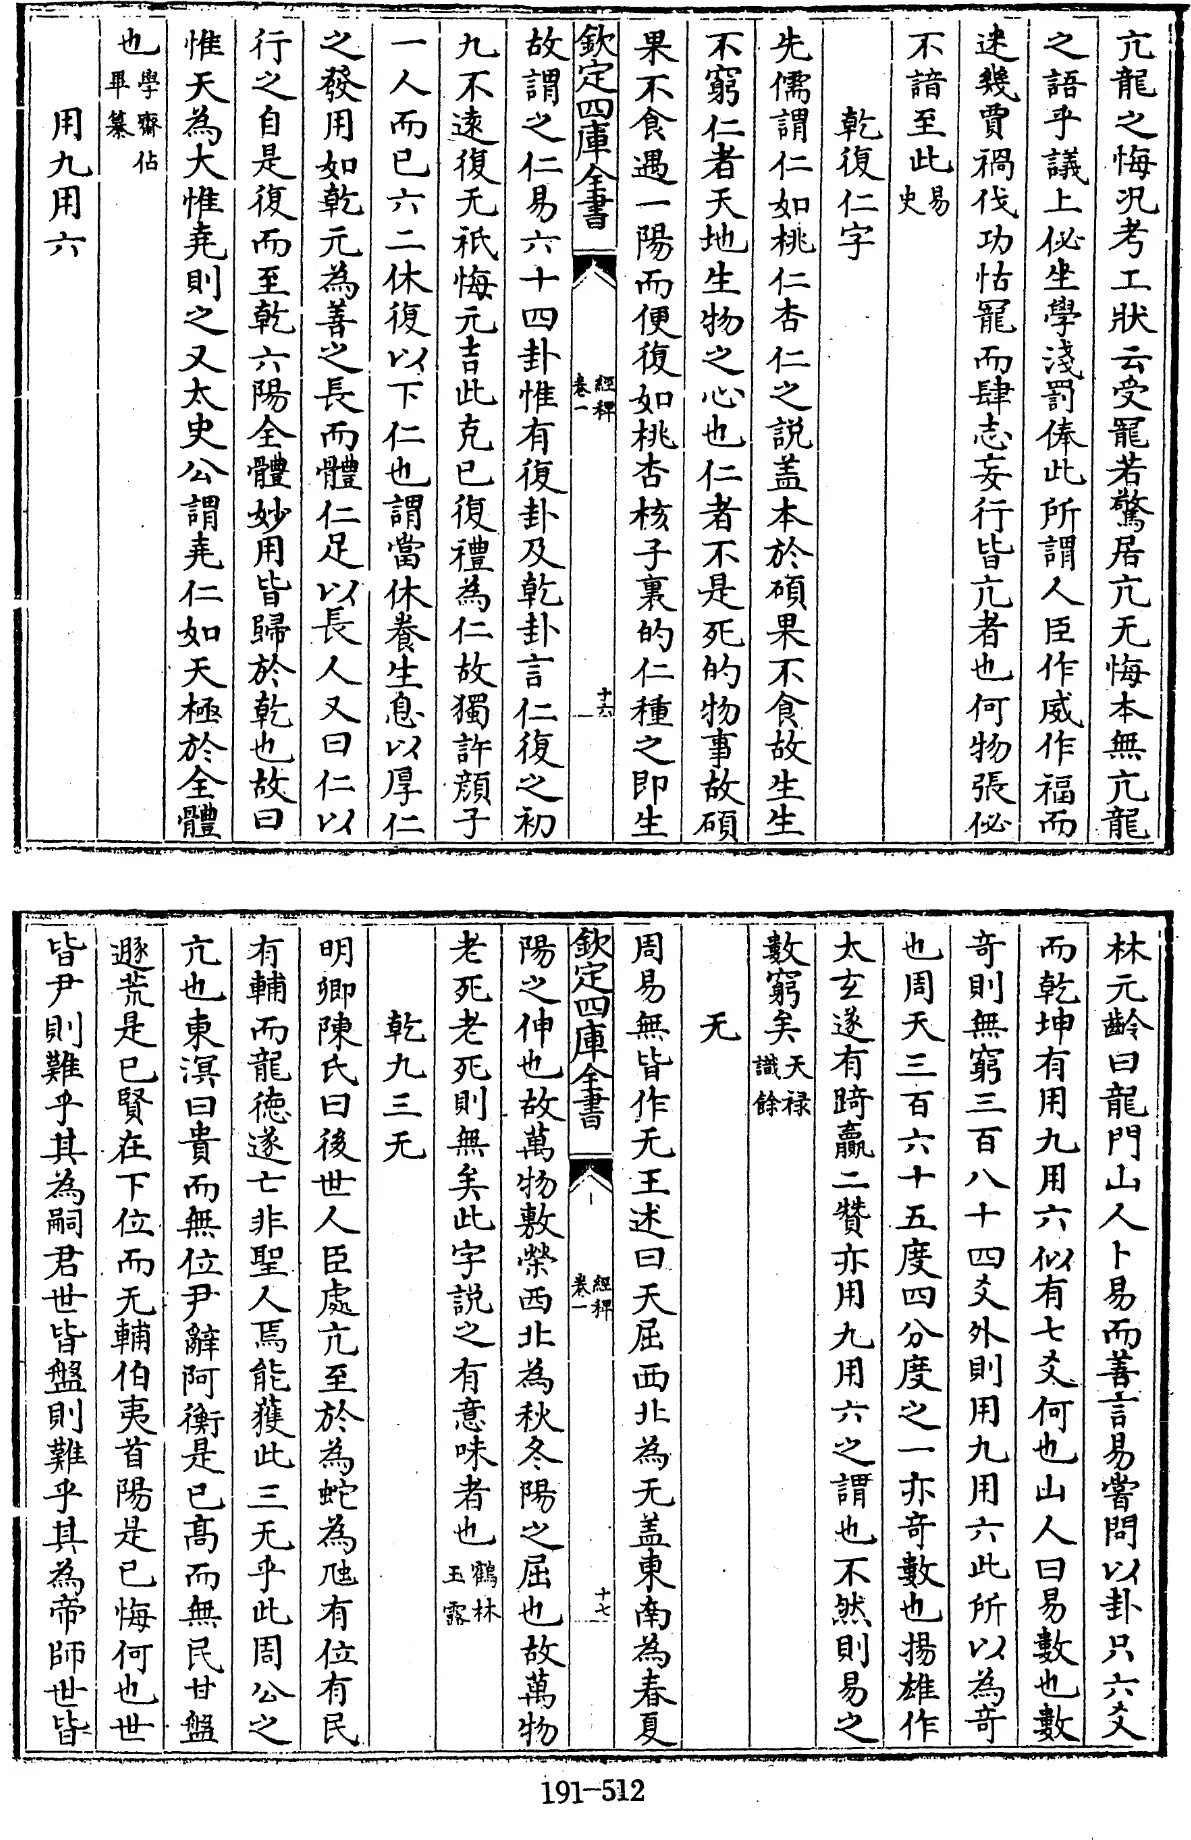 亢龍之悔况考工狀云受寵若驚居亢无悔本無亢龍
之語乎議上佖坐學淺罰俸此所謂人臣作威作福而
速幾賈禍伐功怙寵而肆志妄行皆亢者也何物張佖
不諳至此易史
乾復仁字
先儒謂仁如桃仁杏仁之説盖本於碩果不食故生生
不窮仁者天地生物之心也仁者不是死的物事故碩
果不食遇一陽而便復如桃杏核子裏的仁種之即生
欽定四庫全書
經稗
卷一
十六
故謂之仁易六十四卦惟有復卦及乾卦言仁復之初
九不逺復无祇悔元吉此克已復禮為仁故獨許顔子
一人而已六二休復以下仁也謂當休養生息以厚仁
之發用如乾元為善之長而體仁足以長人又曰仁以
行之自是復而至乾六陽全體妙用皆歸於乾也故曰
惟天為大惟堯則之又太史公謂堯仁如天極於全體
也學齋佔畢纂
用九用六
林元齡曰龍門山人卜易而善言易嘗問以卦只六爻
而乾坤有用九用六似有七爻何也山人曰易數也數
竒則無窮三百八十四爻外則用九用六此所以為竒
也周天三百六十五度四分度之一亦竒數也揚雄作
太𤣥遂有踦贏二贊亦用九用六之謂也不然則易之
數窮矣天禄識餘
无
周易無皆作无王述曰天屈西北為无盖東南為春夏
欽定四庫全書
經稗
卷一
十七
陽之伸也故萬物敷榮西北為秋冬陽之屈也故萬物
老死老死則無矣此字説之有意味者也鶴林玉露
乾九三无
明卿陳氏曰後世人臣處亢至於為蛇為虺有位有民
有輔而龍徳遂亡非聖人焉能獲此三无乎此周公之
亢也東溟曰貴而無位尹辭阿衡是已髙而無民甘盤
遯荒是已賢在下位而无輔伯夷首陽是已悔何也世
皆尹則難乎其為嗣君世皆盤則難乎其為帝師世皆
191-512